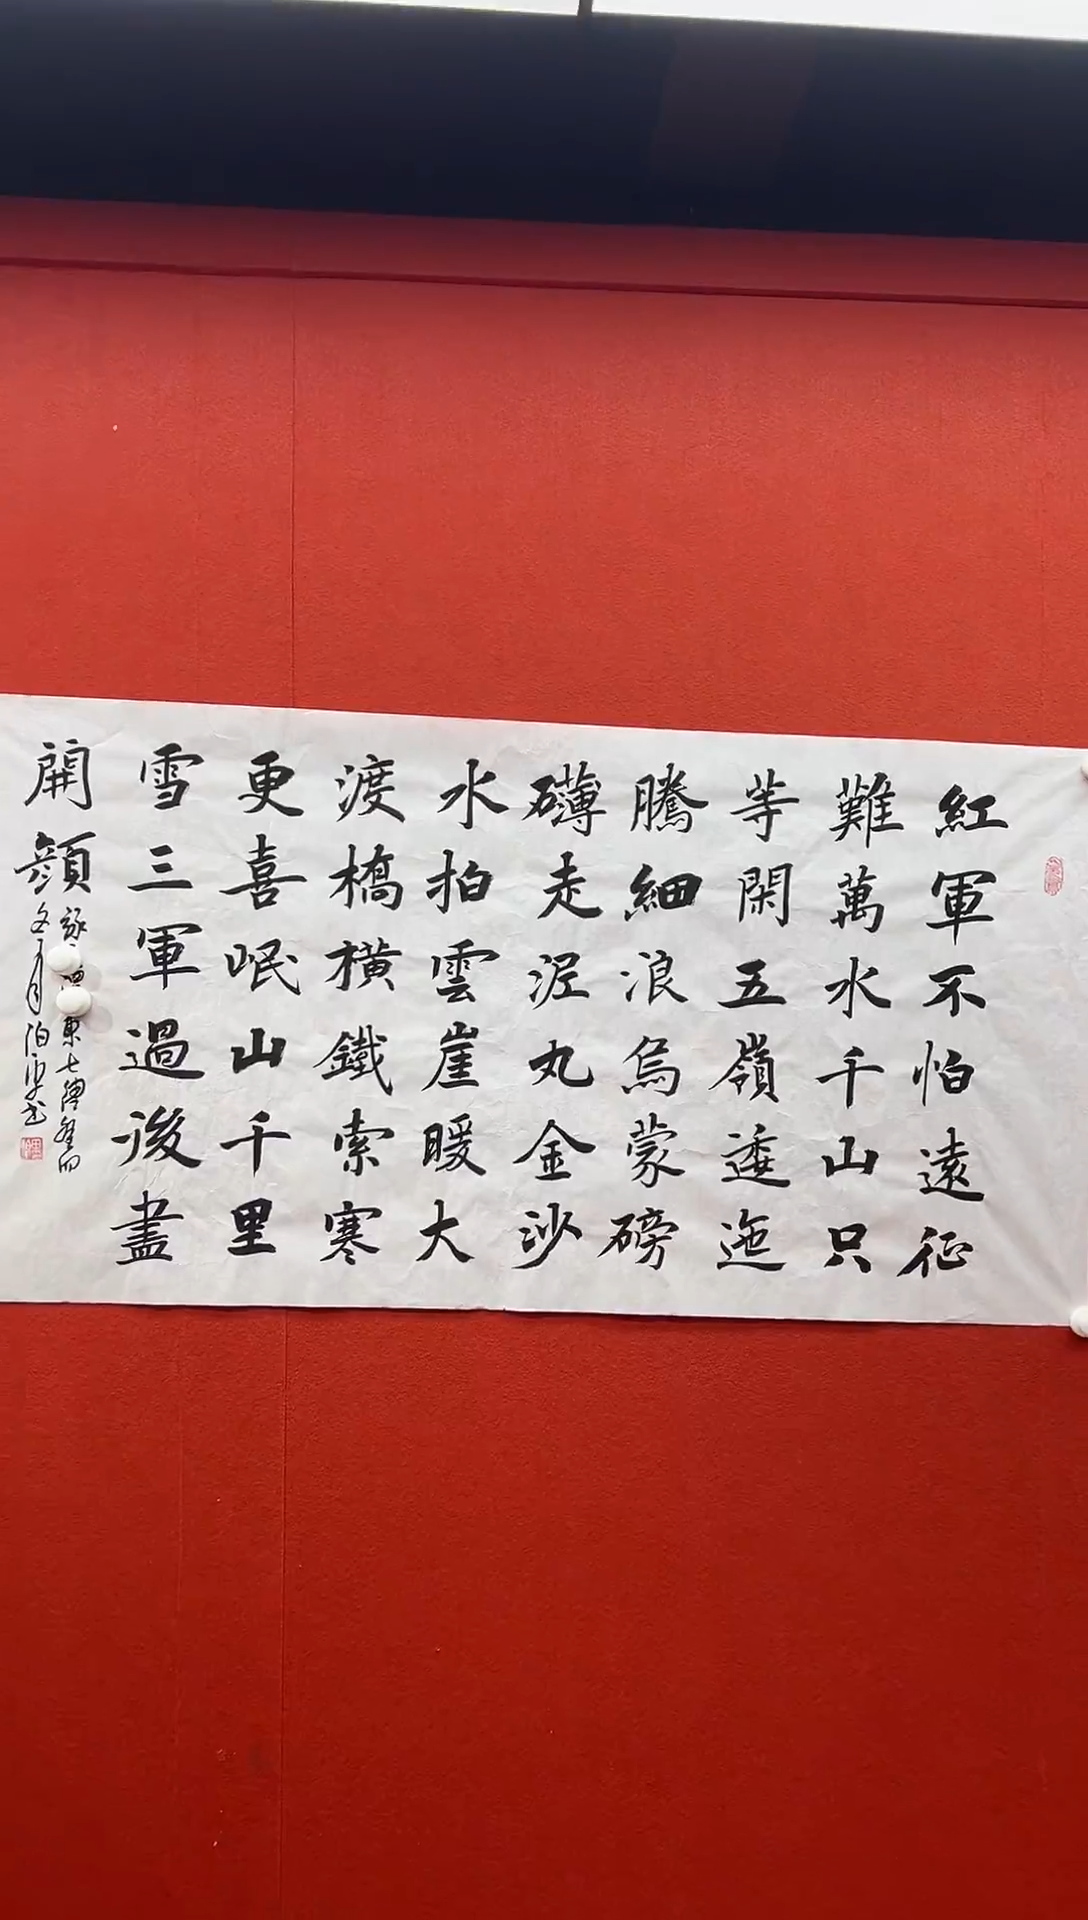 紅軍不怕遠征
難萬水千山只
等閑五嶺逶迤
騰細浪烏蒙磅
礴走泥丸金沙
水拍雲崖暖大
渡橋橫鐵索寒
更喜岷山千里
雪三軍過後盡
開顏
東七律